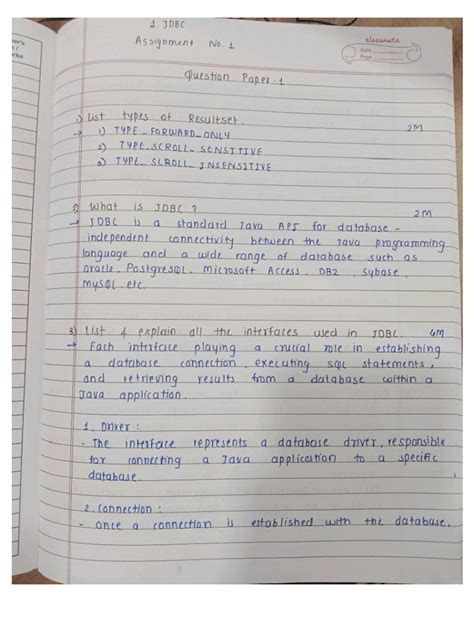 1. JDBC
Assignment No. 1
classmate
Date
Page
Question Paper-1
1) List types of Resultset. 2M
→ 1) TYPE_FORWARD_ONLY
2) TYPE_SCROLL_SENSITIVE
3) TYPE_SCROLL_INSENSITIVE
2) What is JDBC ? 2M
→ JDBC is a standard Java API for database -
independent connectivity between the Java programming
language and a wide range of database such as
oracle, PostgreSQL, Microsoft Access, DB2, Sybase,
MySQL etc.
3) List & explain all the interfaces used in JDBC. 4M
→ Each interface playing a crucial role in establishing
a database connection, executing SQL statements,
and retrieving results from a database within a
Java application.
1. Driver :
- The interface represents a database driver, responsible
for connecting a Java application to a specific
database.
2. Connection :
- once a connection is established with the database,